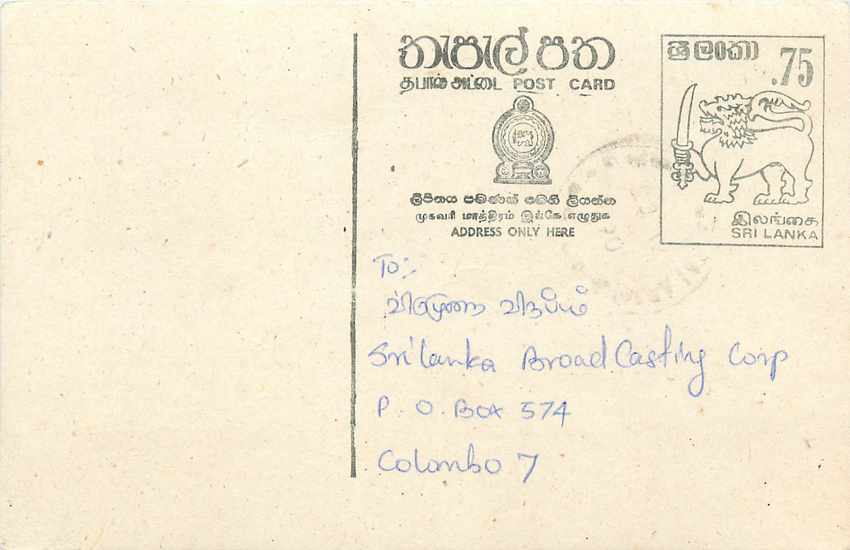 තැපැල් පත
தபால் அட்டை POST CARD
ලිපිනය පමණක් මෙහි ලියන්න
முகவரி மாத்திரம் இங்கே எழுதுக
ADDRESS ONLY HERE
ශ්‍රී ලංකා
.75
இலங்கை
SRI LANKA
To:-
விருப்பம்
Sri lanka BroadCasting Corp
P. O. Box 574
Colombo 7